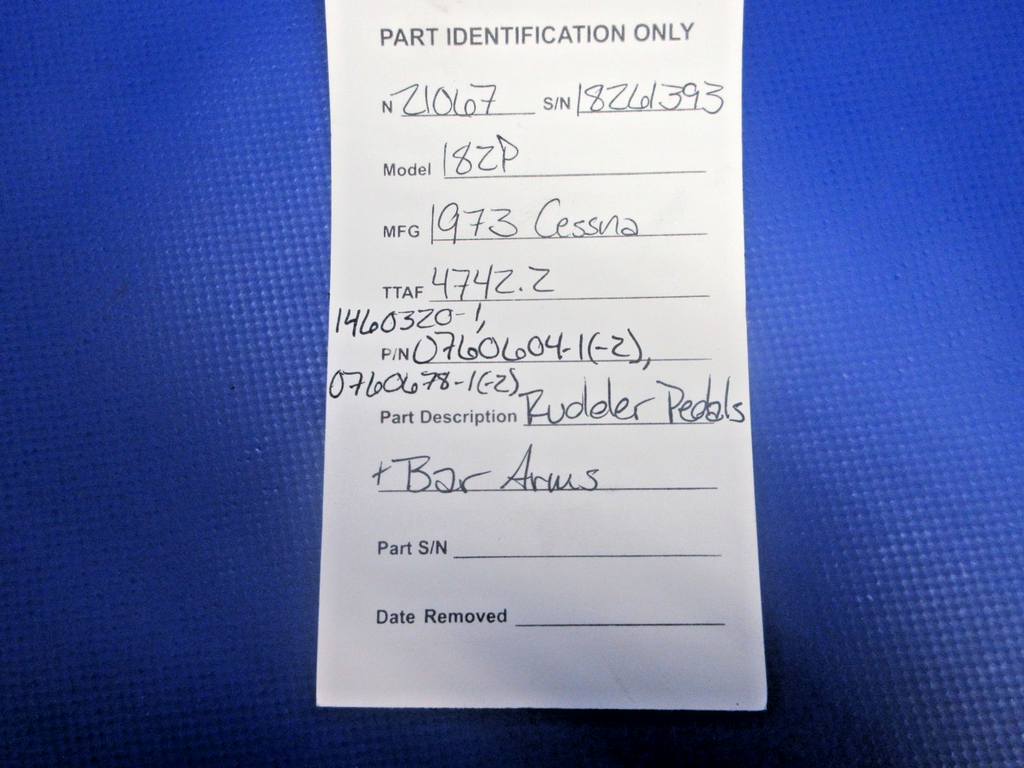 PART IDENTIFICATION ONLY
N 21067 S/N 18261393
Model 182P
MFG 1973 Cessna
TTAF 4742.2
1460320-1,
P/N 0760604-1(-2),
0760678-1(-2)
Part Description Rudder Pedals
+ Bar Arms
Part S/N
Date Removed